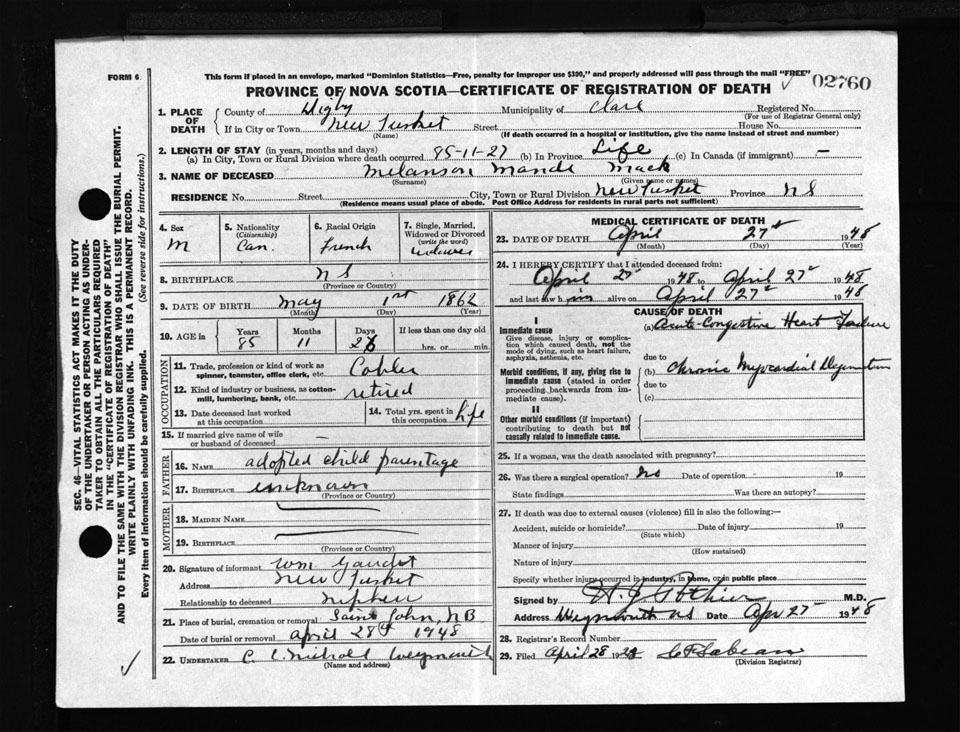 FORM 6.
This form if placed in an envelope, marked "Dominion Statistics—Free, penalty for improper use $300," and properly addressed will pass through the mail "FREE"
02760
PROVINCE OF NOVA SCOTIA—CERTIFICATE OF REGISTRATION OF DEATH
1. PLACE OF DEATH
County of Digby Municipality of Clare Registered No.
(For use of Registrar General only)
If in City or Town New Tusket Street House No.
(Name) (If death occurred in a hospital or institution, give the name instead of street and number)
2. LENGTH OF STAY (in years, months and days)
(a) In City, Town or Rural Division where death occurred 85-11-27 (b) In Province Life (c) In Canada (if immigrant) —
3. NAME OF DECEASED Melanson Mande Mack
(Surname) (Given name or names)
RESIDENCE No. Street City, Town or Rural Division New Tusket Province N S
(Residence means usual place of abode. Post Office Address for residents in rural parts not sufficient)
4. Sex
M
5. Nationality
(Citizenship)
Can.
6. Racial Origin
French
7. Single, Married, Widowed or Divorced
(write the word)
widower
8. BIRTHPLACE N S
(Province or Country)
9. DATE OF BIRTH May 1st 1862
(Month) (Day) (Year)
10. AGE in
Years Months Days If less than one day old
85 11 26 hrs. or min.
OCCUPATION
11. Trade, profession or kind of work as spinner, teamster, office clerk, etc. Cobler
12. Kind of industry or business, as cotton-mill, lumbering, bank, etc. retired
13. Date deceased last worked at this occupation
14. Total yrs. spent in this occupation life
15. If married give name of wife or husband of deceased —
FATHER
16. NAME adopted child parentage
17. BIRTHPLACE unknown
(Province or Country)
MOTHER
18. MAIDEN NAME
19. BIRTHPLACE
(Province or Country)
20. Signature of informant Wm Gaudet
Address New Tusket
Relationship to deceased nephew
21. Place of burial, cremation or removal Saint John, N B
Date of burial or removal april 28th 1948
22. UNDERTAKER C. L. Nichols Weymouth
(Name and address)
MEDICAL CERTIFICATE OF DEATH
23. DATE OF DEATH April 27 1948
(Month) (Day) (Year)
24. I HEREBY CERTIFY that I attended deceased from:
April 27 1948 to April 27 1948
and last saw h im alive on April 27 1948
CAUSE OF DEATH
I
Immediate cause
Give disease, injury or complication which caused death, not the mode of dying, such as heart failure, asphyxia, asthenia, etc.
(a) Acute Congestive Heart Failure
due to
Morbid conditions, if any, giving rise to immediate cause (stated in order proceeding backwards from immediate cause).
(b) Chronic Myocardial Degeneration
due to
(c)
II
Other morbid conditions (if important) contributing to death but not causally related to immediate cause.
25. If a woman, was the death associated with pregnancy?
26. Was there a surgical operation? No Date of operation 19
State findings Was there an autopsy?
27. If death was due to external causes (violence) fill in also the following:—
Accident, suicide or homicide? Date of injury 19
(State which)
Manner of injury
(How sustained)
Nature of injury
Specify whether injury occurred in industry, in home, or in public place
Signed by M.D.
Address Weymouth NS Date Apr 27 1948
28. Registrar's Record Number
29. Filed April 28 19
(Division Registrar)
SEC. 46—VITAL STATISTICS ACT MAKES IT THE DUTY
OF THE UNDERTAKER OR PERSON ACTING AS UNDER-
TAKER TO OBTAIN ALL THE PARTICULARS REQUIRED
IN THE "CERTIFICATE OF REGISTRATION OF DEATH"
AND TO FILE THE SAME WITH THE DIVISION REGISTRAR WHO SHALL ISSUE THE BURIAL PERMIT.
WRITE PLAINLY WITH UNFADING INK. THIS IS A PERMANENT RECORD.
Every item of information should be carefully supplied. (See reverse side for instructions.)